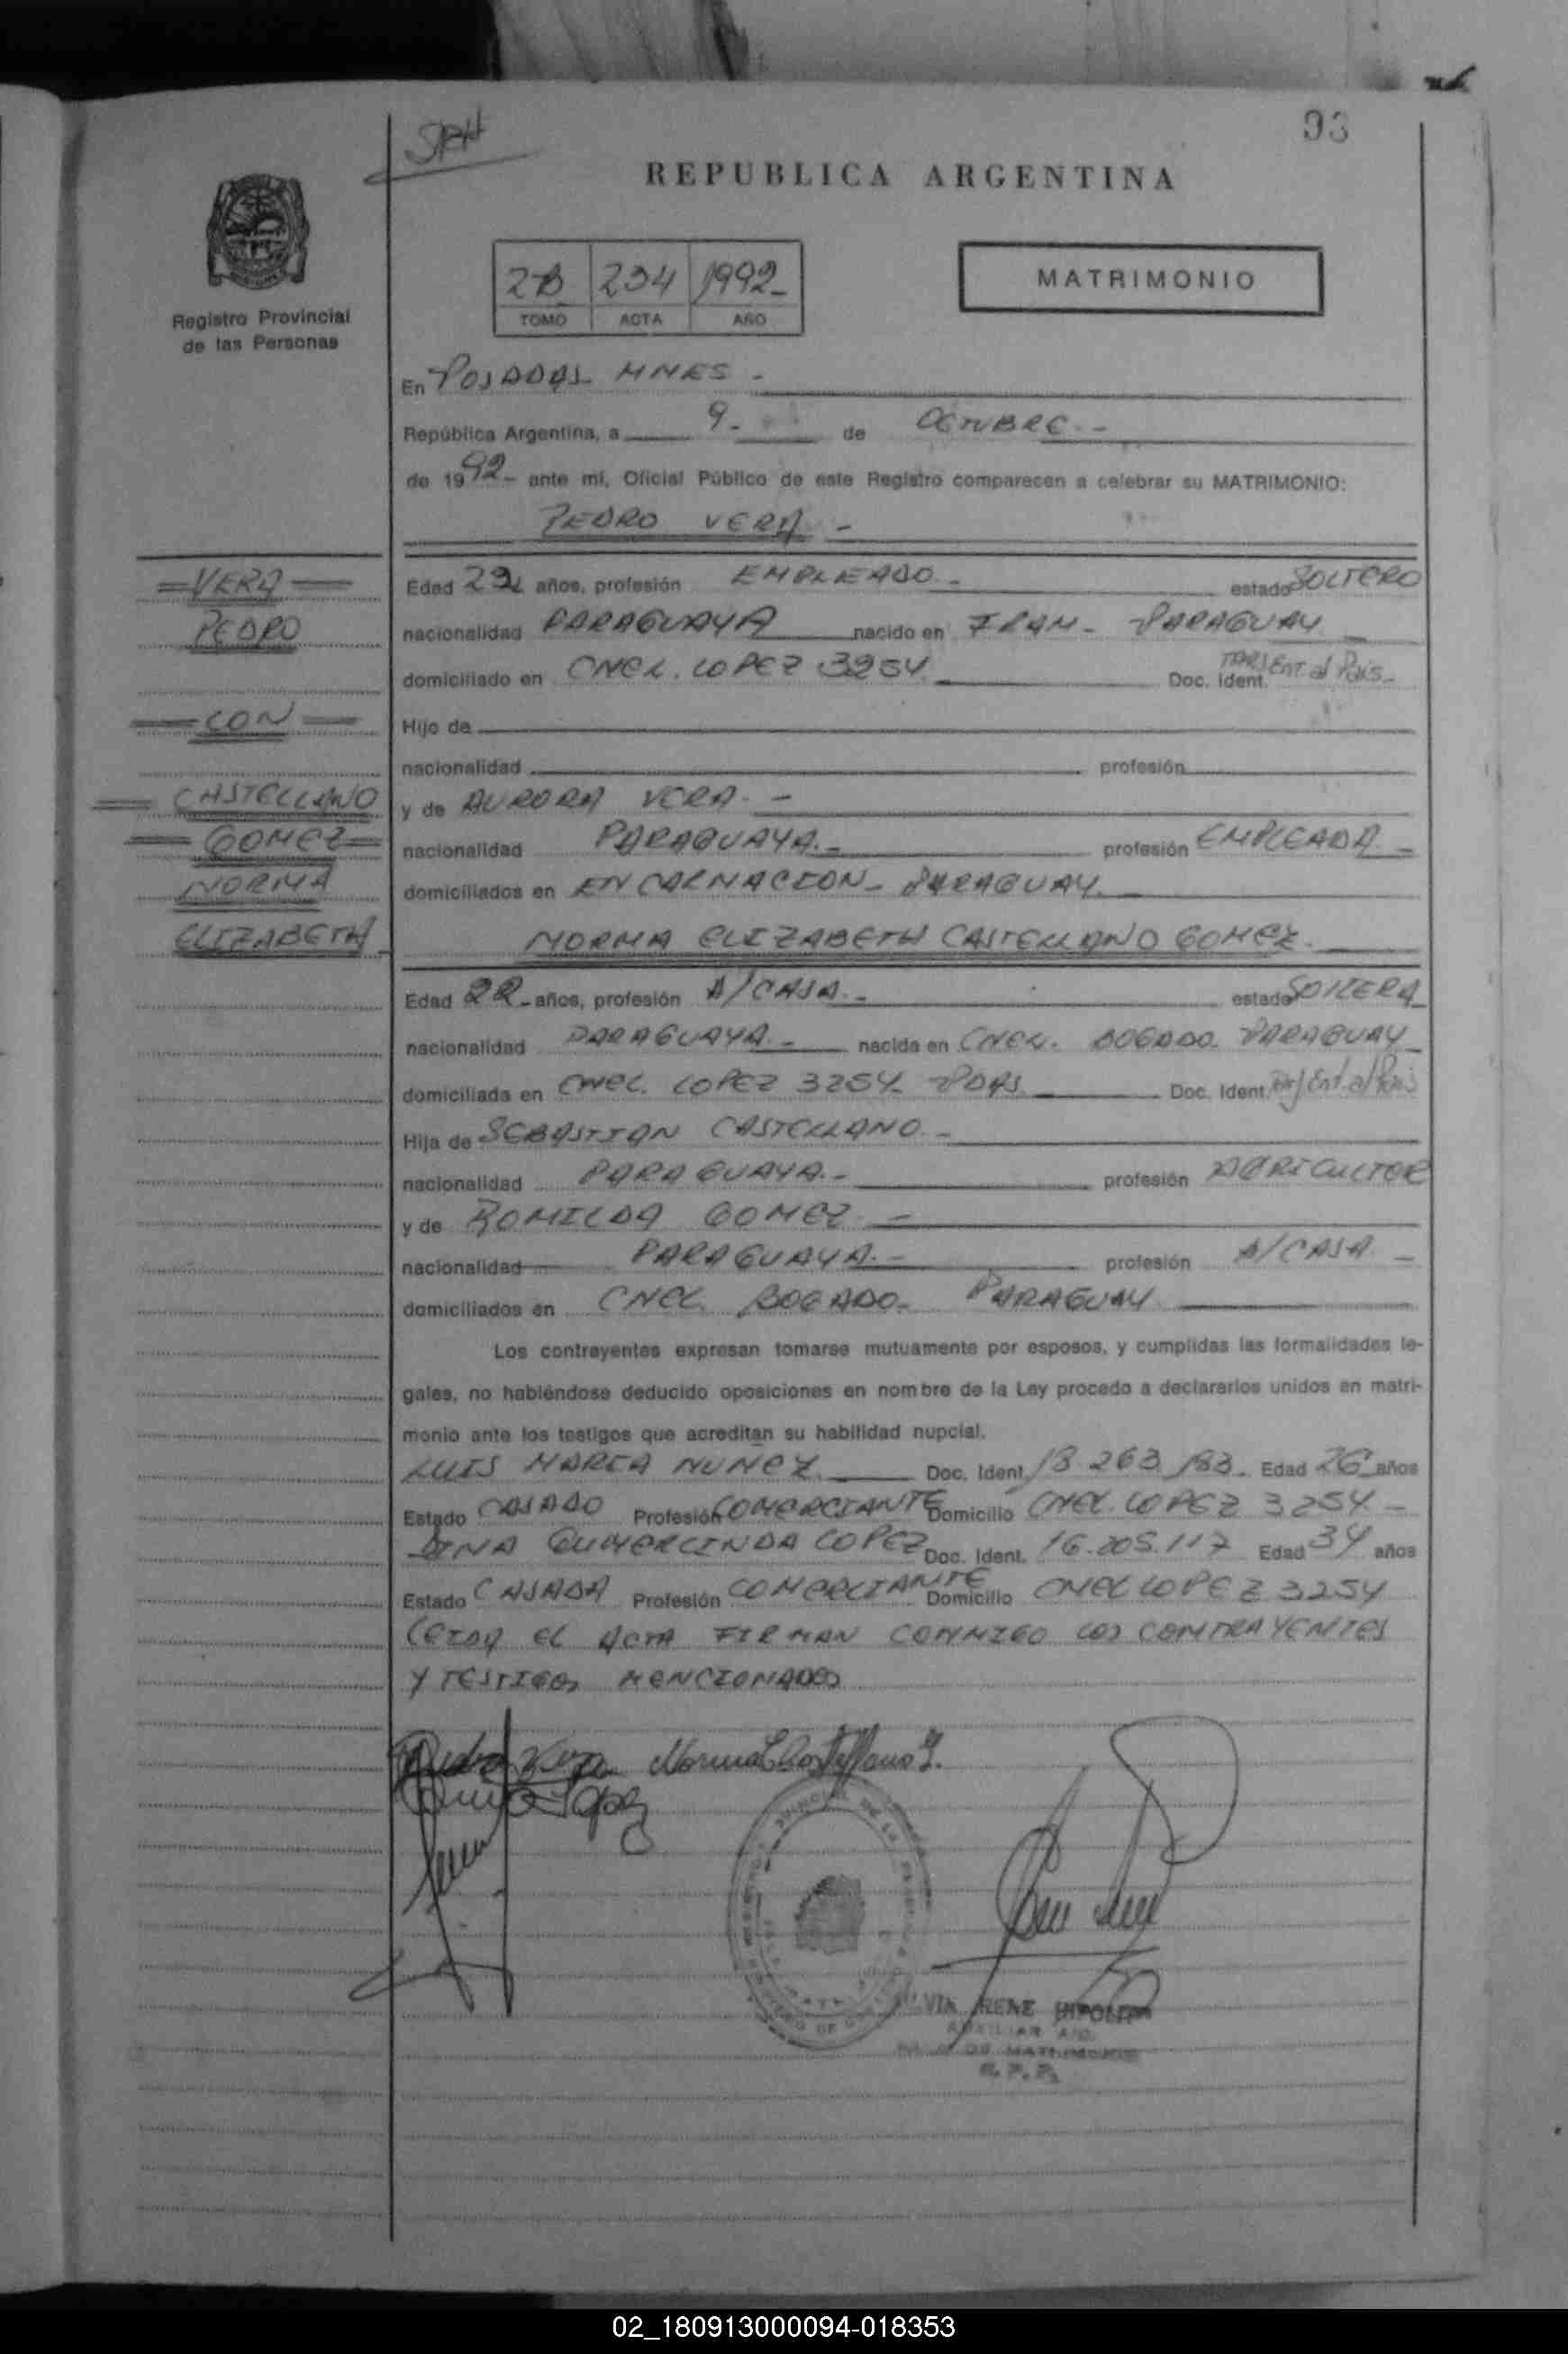 93
REPUBLICA ARGENTINA
Registro Provincial
de las Personas
2B 234 1992
TOMO ACTA AÑO
MATRIMONIO
En POSADAS MNES -
República Argentina, a 9- de OCTUBRE -
de 1992- ante mí, Oficial Público de este Registro comparecen a celebrar su MATRIMONIO:
PEDRO VERA -
=VERA=
PEDRO
=CON=
=CASTELLANO
=GOMEZ=
NORMA
ELIZABETH
Edad 29 años, profesión EMPLEADO - estado SOLTERO
nacionalidad PARAGUAYA nacido en FRAM - PARAGUAY
domiciliado en CNEL. LOPEZ 3254 Doc. Ident. TARJ Ent. al País -
Hijo de
nacionalidad profesión
y de AURORA VERA. -
nacionalidad PARAGUAYA. - profesión EMPLEADA -
domiciliados en ENCARNACION - PARAGUAY.
NORMA ELIZABETH CASTELLANO GOMEZ.
Edad 22 - años, profesión A/CASA. - estado SOLTERA
nacionalidad PARAGUAYA. - nacida en CNEL. BOGADO. PARAGUAY
domiciliada en CNEL. LOPEZ 3254 - PDAS. Doc. Ident. Tarj Ent. al País
Hija de SEBASTIAN CASTELLANO. -
nacionalidad PARAGUAYA. - profesión AGRICULTOR
y de ROMILDA GOMEZ -
nacionalidad PARAGUAYA. - profesión A/CASA. -
domiciliados en CNEL. BOGADO - PARAGUAY
Los contrayentes expresan tomarse mutuamente por esposos, y cumplidas las formalidades le-
gales, no habiéndose deducido oposiciones en nombre de la Ley procedo a declararlos unidos en matri-
monio ante los testigos que acreditan su habilidad nupcial.
LUIS MARIA NUNEZ Doc. Ident. 18.263.183. Edad 26 años
Estado CASADO Profesión COMERCIANTE Domicilio CNEL. LOPEZ 3254 -
GUMERCINDA LOPEZ Doc. Ident. 16.205.117 Edad 34 años
Estado CASADA Profesión COMERCIANTE Domicilio CNEL LOPEZ 3254
LEIDA EL ACTA FIRMAN CONMIGO LOS CONTRAYENTES
Y TESTIGOS MENCIONADOS
Pedro Vera Norma E Castellano G.
IRENE HIPOLITO
AUXILIAR
DE MATRIMONIOS
R. P. P.
02_180913000094-018353